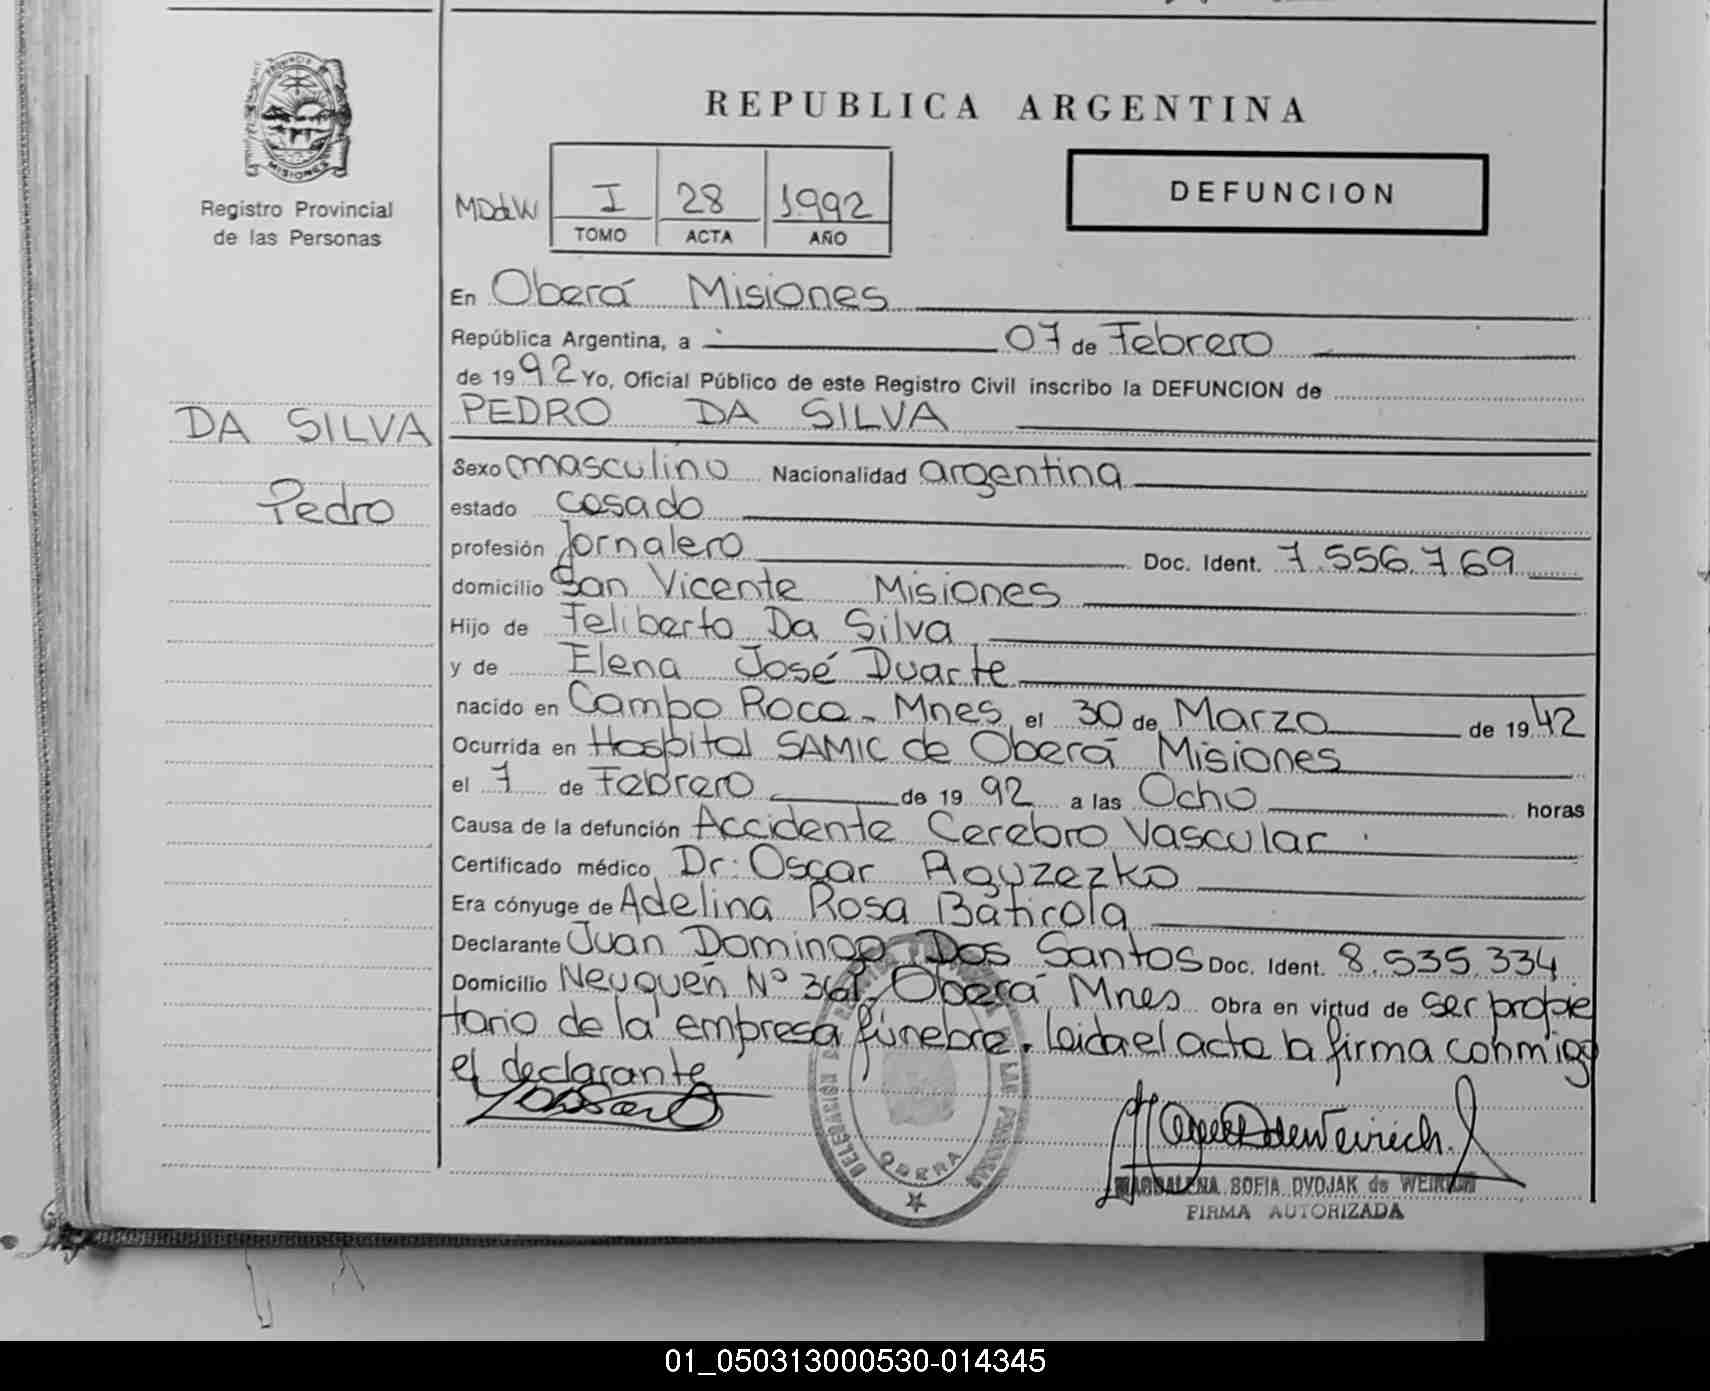 REPUBLICA ARGENTINA
MISIONES
Registro Provincial
de las Personas
MDdW
I 28 1992
TOMO ACTA AÑO
DEFUNCION
En Oberá Misiones
República Argentina, a 07 de Febrero
de 1992 Yo, Oficial Público de este Registro Civil inscribo la DEFUNCION de
PEDRO DA SILVA
DA SILVA
Pedro
Sexo masculino Nacionalidad argentina
estado casado
profesión Jornalero Doc. Ident. 7.556.769
domicilio San Vicente Misiones
Hijo de Feliberto Da Silva
y de Elena José Duarte
nacido en Campo Roca - Mnes, el 30 de Marzo de 1942
Ocurrida en Hospital SAMIC de Oberá Misiones
el 7 de Febrero de 1992 a las Ocho horas
Causa de la defunción Accidente Cerebro Vascular.
Certificado médico Dr: Oscar Aguzezko
Era cónyuge de Adelina Rosa Baticola
Declarante Juan Domingo Dos Santos Doc. Ident. 8.535.334
Domicilio Neuquén Nº Oberá Mnes Obra en virtud de ser propie
tario de la empresa fúnebre. Leida el acta la firma conmigo
el declarante
OBERA
MAGDALENA SOFIA DVOJAK de WEIRICH
FIRMA AUTORIZADA
01_050313000530-014345